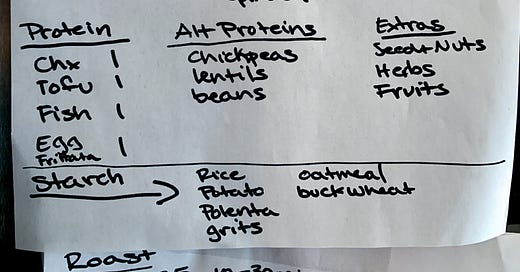 Protein
Chx 1
Tofu 1
Fish 1
Egg 1
Frittata
Alt Proteins
Chickpeas
lentils
beans
Extras
Seed + Nuts
Herbs
Fruits
Starch
Rice
Potato
Polenta
grits
oatmeal
buckwheat
Roast